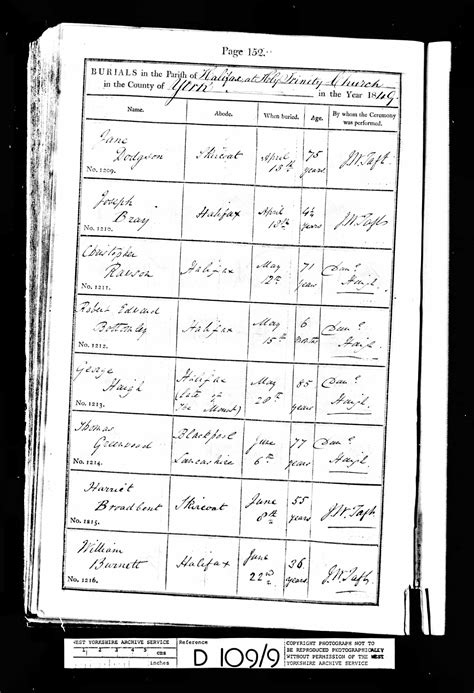 Page 152.
BURIALS in the Parish of Halifax at Holy Trinity Church
in the County of York in the Year 1849.
Name. Abode. When buried. Age. By whom the Ceremony was performed.
Jane Dodgson Skircoat April 13th 75 years J.W. Taft.
No. 1209.
Joseph Bray Halifax April 18th years J.W. Taft
No. 1210.
Christopher Rawson Halifax May 12th 71 years Danl Haigh
No. 1211.
Robert Edward Bottomley Halifax May 15th 6 months Danl Haigh.
No. 1212.
George Haigh Halifax (late of The Mount) May 28th 85 years Danl Haigh
No. 1213.
Thomas Greenwood Blackpool Lancashire June 6th 77 years Danl Haigh.
No. 1214.
Harriet Broadbent Skircoat June 8th 55 years J.W. Taft
No. 1215.
William Burnett Halifax June 22nd 36 years J.W. Taft
No. 1216.
WEST YORKSHIRE ARCHIVE SERVICE
cms
inches
Reference
D 109/9
COPYRIGHT PHOTOGRAPH NOT TO
BE REPRODUCED PHOTOGRAPHICALLY
WITHOUT PERMISSION OF THE WEST
YORKSHIRE ARCHIVE SERVICE